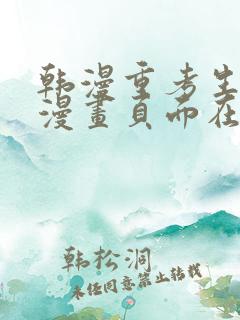 韩漫重考生
漫畫頁而在
韩松洞
未经同意禁止转载